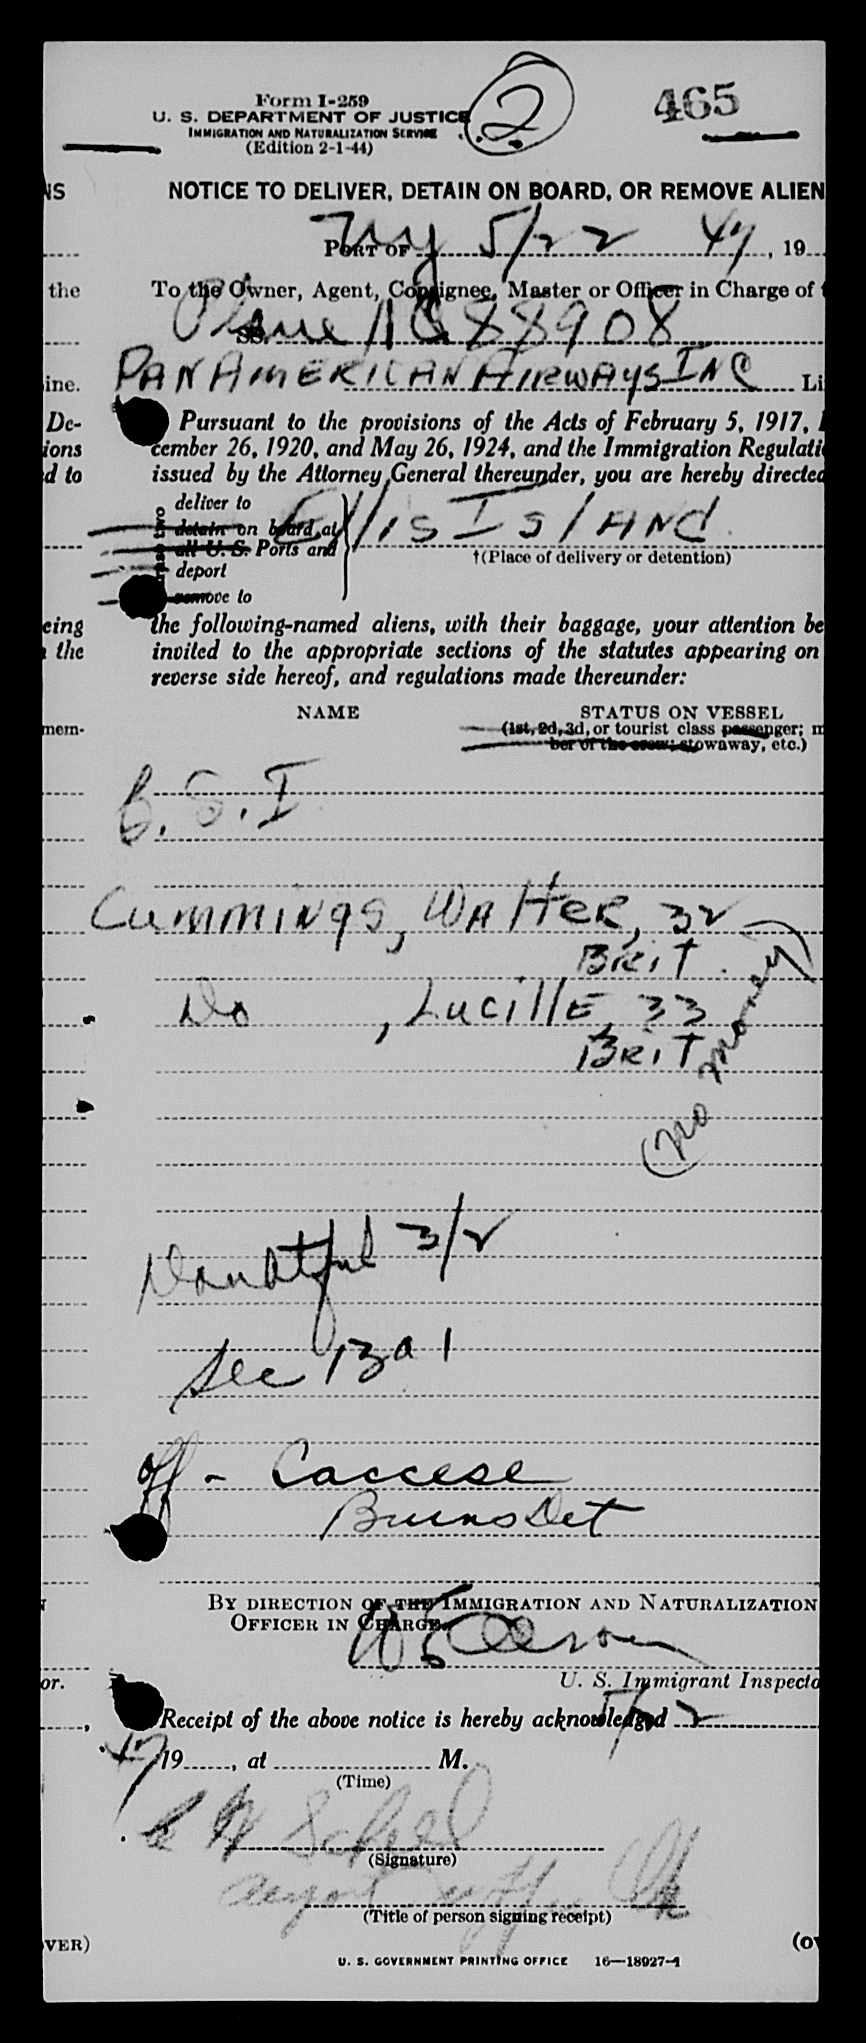 Form I-259
U. S. DEPARTMENT OF JUSTICE
IMMIGRATION AND NATURALIZATION SERVICE
(Edition 2-1-44)
2
465
NS
NOTICE TO DELIVER, DETAIN ON BOARD, OR REMOVE ALIEN
PORT OF NY 5/22 47, 19
the
To the Owner, Agent, Consignee, Master or Officer in Charge of
SS. Plane NC 88908
ine.
PAN AMERICAN AIRWAYS INC Li
De-
Pursuant to the provisions of the Acts of February 5, 1917,
ions
cember 26, 1920, and May 26, 1924, and the Immigration Regulati
d to
issued by the Attorney General thereunder, you are hereby directed
deliver to
detain on board at
all U. S. Ports and
deport
remove to
Ellis Island
†(Place of delivery or detention)
eing
the following-named aliens, with their baggage, your attention be
the
invited to the appropriate sections of the statutes appearing on
reverse side hereof, and regulations made thereunder:
NAME
STATUS ON VESSEL
mem-
(1st, 2d, 3d, or tourist class passenger; m
ber of the crew; stowaway, etc.)
B. S. I
Cummings, Walter, 32
BRIT.
Do, Lucille, 33
BRIT
(no money)
Doubtful 3/2
Sec 13 a 1
off - Caccese
Burns Det
BY DIRECTION OF THE IMMIGRATION AND NATURALIZATION
OFFICER IN CHARGE.
or.
U. S. Immigrant Inspecto
Receipt of the above notice is hereby acknowledged
47 19, at M.
(Time)
(Signature)
(Title of person signing receipt)
VER)
(OV
U. S. GOVERNMENT PRINTING OFFICE 16—18927-1